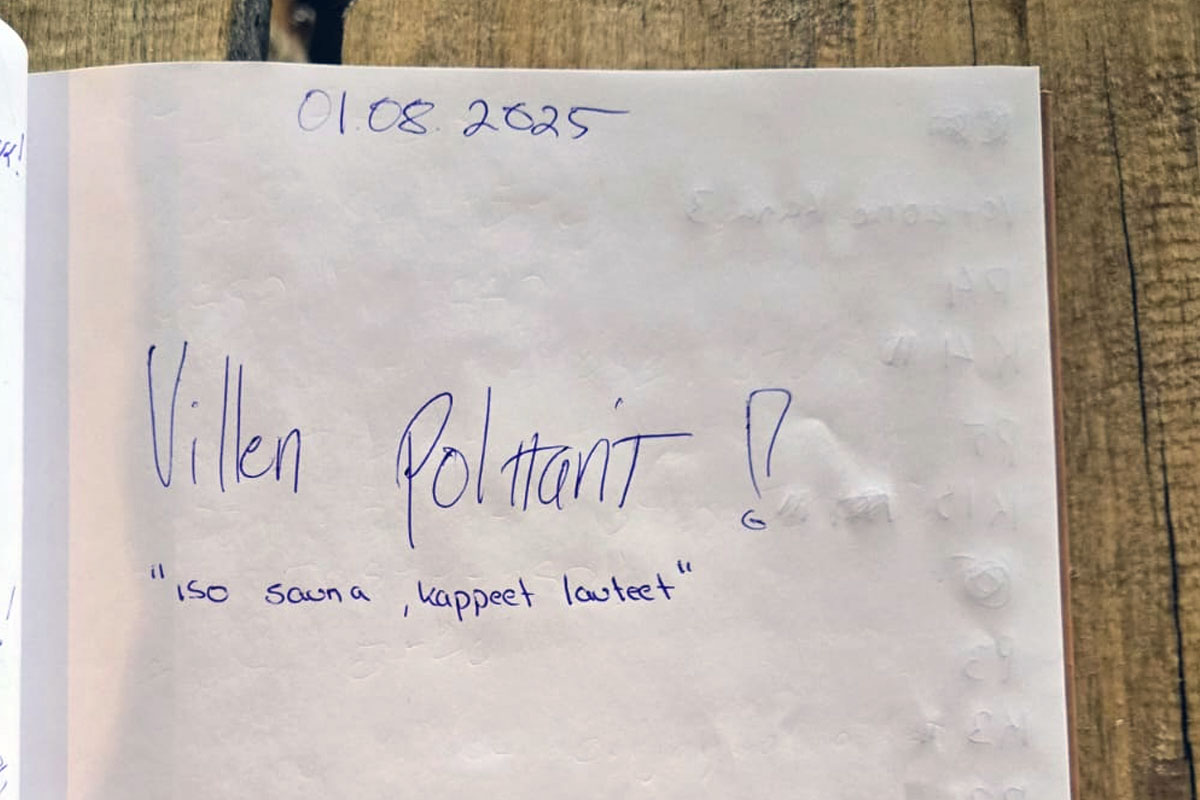 01.08.2025
Villen Polttarit !
"iso sauna, kappeet lauteet"